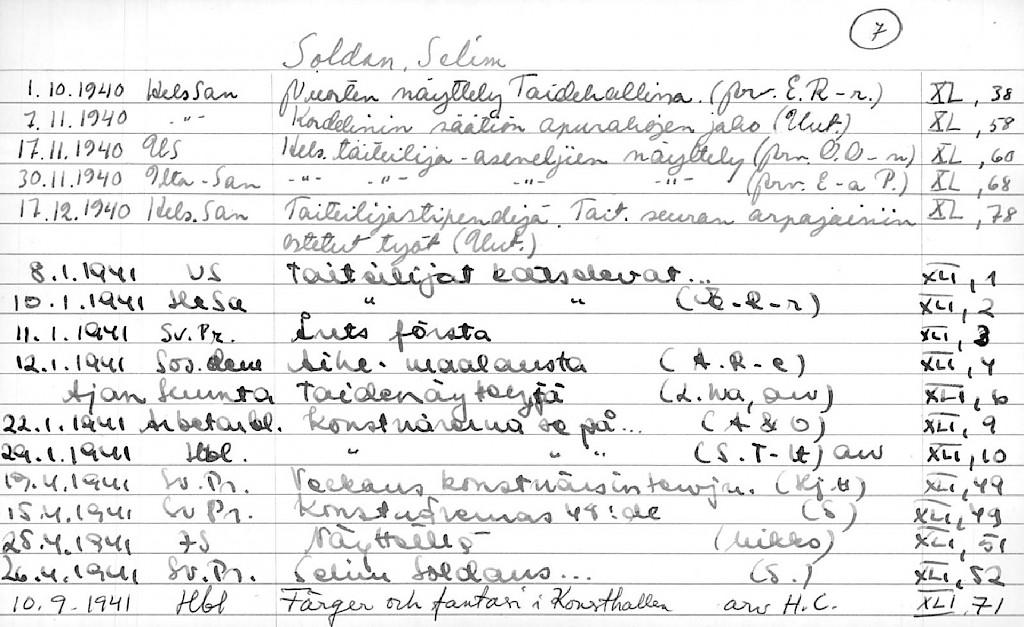 7
Soldan, Selim
1.10.1940 HelsSan Nuorten näyttely Taidehallissa. (prv. E.R-r.) XL, 38
7.11.1940 -"- Kordelinin säätiön apurahojen jako (Uut.) XL, 58
17.11.1940 US Hels. taiteilija-aseveljien näyttely (prv. O.O-n) XL, 60
30.11.1940 Ilta-San -"- -"- -"- -"- (prv. E-a P.) XL, 68
17.12.1940 Hels.San Taiteilijastipendejä. Tait. seuran arpajaisiin XL, 78
ostetut työt (Uut.)
8.1.1941 US Taiteilijat katselevat... XLI, 1
10.1.1941 HeSa " " (E-R-r) XLI, 2
11.1.1941 Sv.Pr. Årets första XLI, 3
12.1.1941 Sos.dem Aihe- maalausta (A.R-e) XLI, 4
Ajan Suunta Taidenäyttelyjä (L.Wa, arv) XLI, 6
22.1.1941 Arbetarbl. Konstnärerna se på... (A & O) XLI, 9
29.1.1941 Hbl. " " " (S.T-H) arv XLI, 10
19.4.1941 Sv.Pr. Veckans konstnärsintervju. (Hj.H) XLI, 49
15.4.1941 Sv Pr. Konstnärernas 48:de (S) XLI, 49
25.4.1941 IS Näyttelyjä (Mikko) XLI, 51
26.4.1941 Sv.Pr. Selim Soldans... (S.) XLI, 52
10.9-1941 Hbl Färger och fantasi i Konsthallen arv H.C. XLI, 71